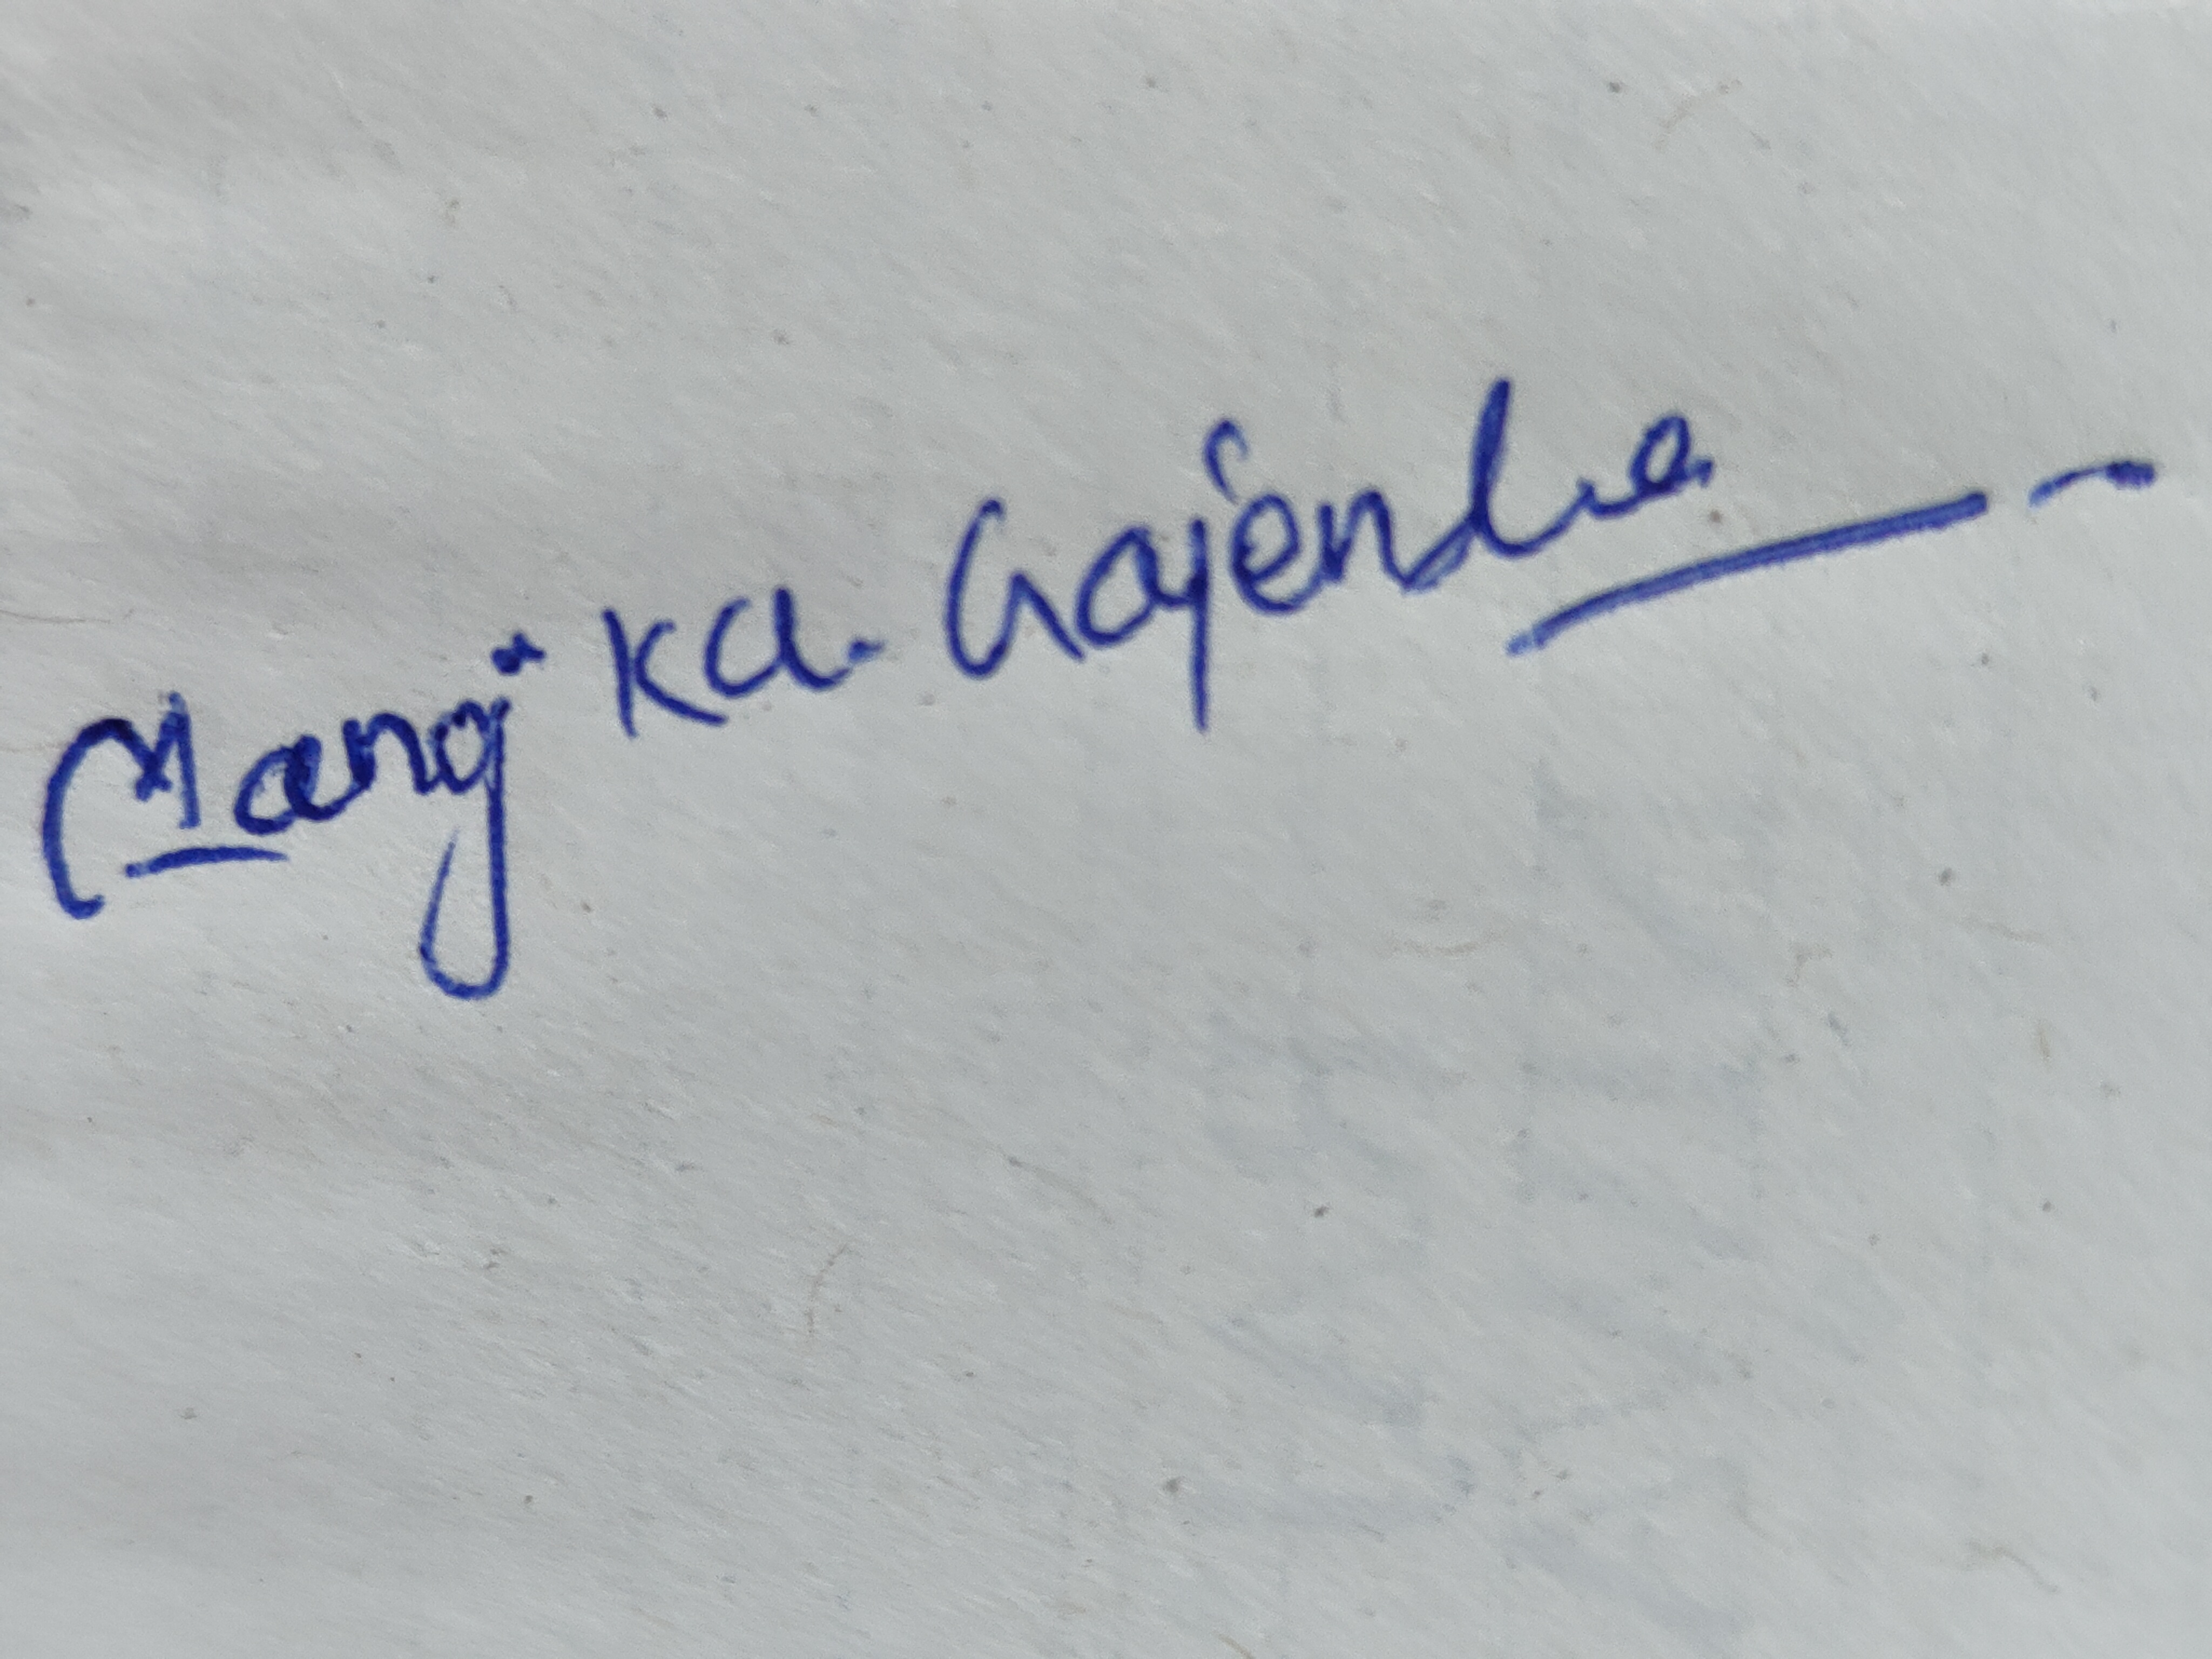 Manoj Ku. Gajendra